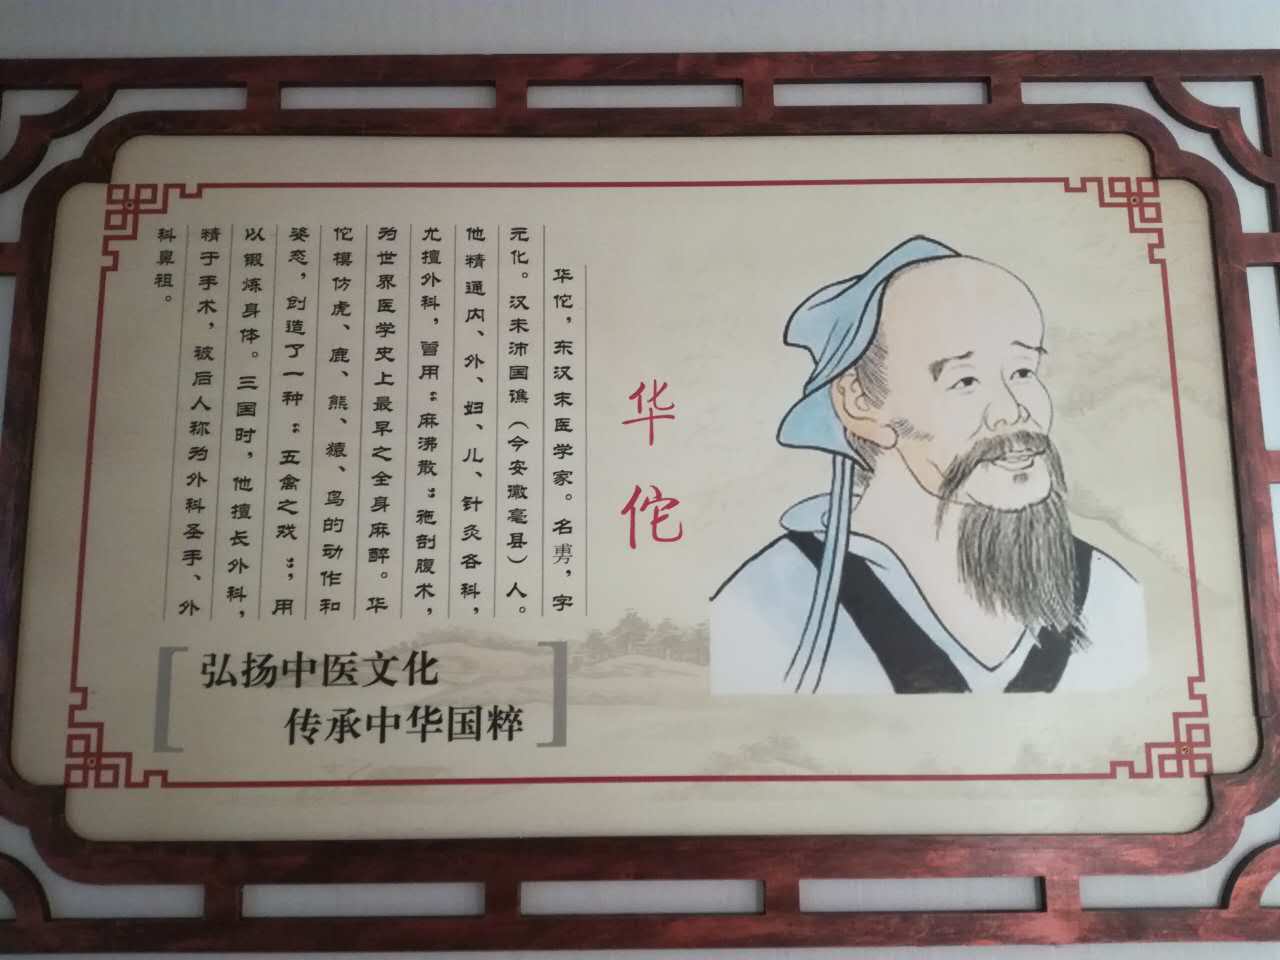 华佗
华佗，东汉末医学家。名旉，字
元化。汉末沛国谯（今安徽亳县）人。
他精通内、外、妇、儿、针灸各科，
尤擅外科，曾用“麻沸散”施剖腹术，
为世界医学史上最早之全身麻醉。华
佗模仿虎、鹿、熊、猿、鸟的动作和
姿态，创造了一种“五禽之戏”，用
以锻炼身体。三国时，他擅长外科，
精于手术，被后人称为外科圣手、外
科鼻祖。
弘扬中医文化
传承中华国粹